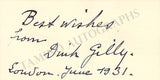 Best wishes
from
Dinh Gilly.
London. June 1931.